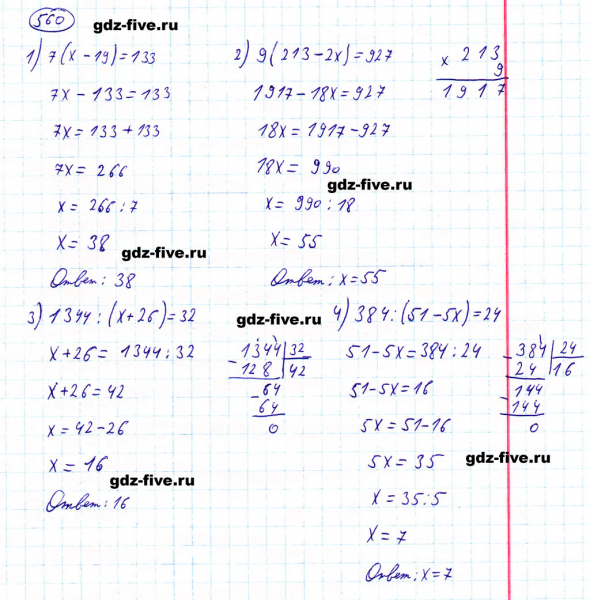 560
gdz-five.ru
1) 7(x-19)=133
7x-133=133
7x=133+133
7x=266
x=266:7
x=38
gdz-five.ru
Ответ: 38
2) 9(213-2x)=927
1917-18x=927
18x=1917-927
18x=990
gdz-five.ru
x=990:18
x=55
Ответ: x=55
x 213
9
1917
3) 1344:(x+26)=32
x+26=1344:32
x+26=42
x=42-26
x=16
gdz-five.ru
Ответ: 16
gdz-five.ru
1344 32
-128 42
-64
64
0
4) 384:(51-5x)=24
51-5x=384:24
51-5x=16
5x=51-16
5x=35
x=35:5
x=7
Ответ: x=7
-384 24
24 16
-144
144
0
gdz-five.ru